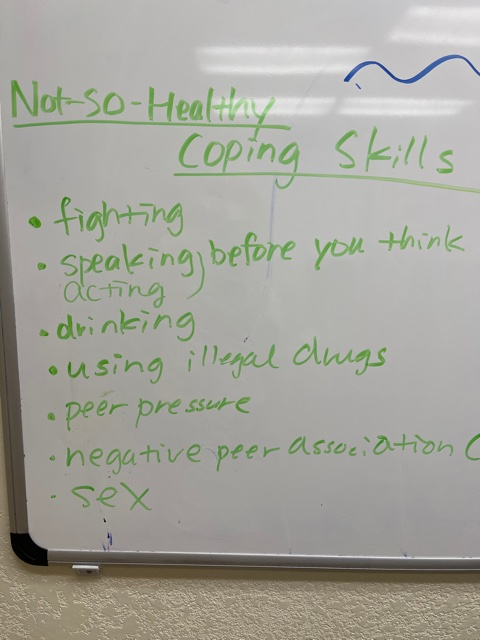 Not-So-Healthy
Coping Skills
• fighting
• speaking) before you think
acting
• drinking
• using illegal drugs
• peer pressure
• negative peer association (
• sex